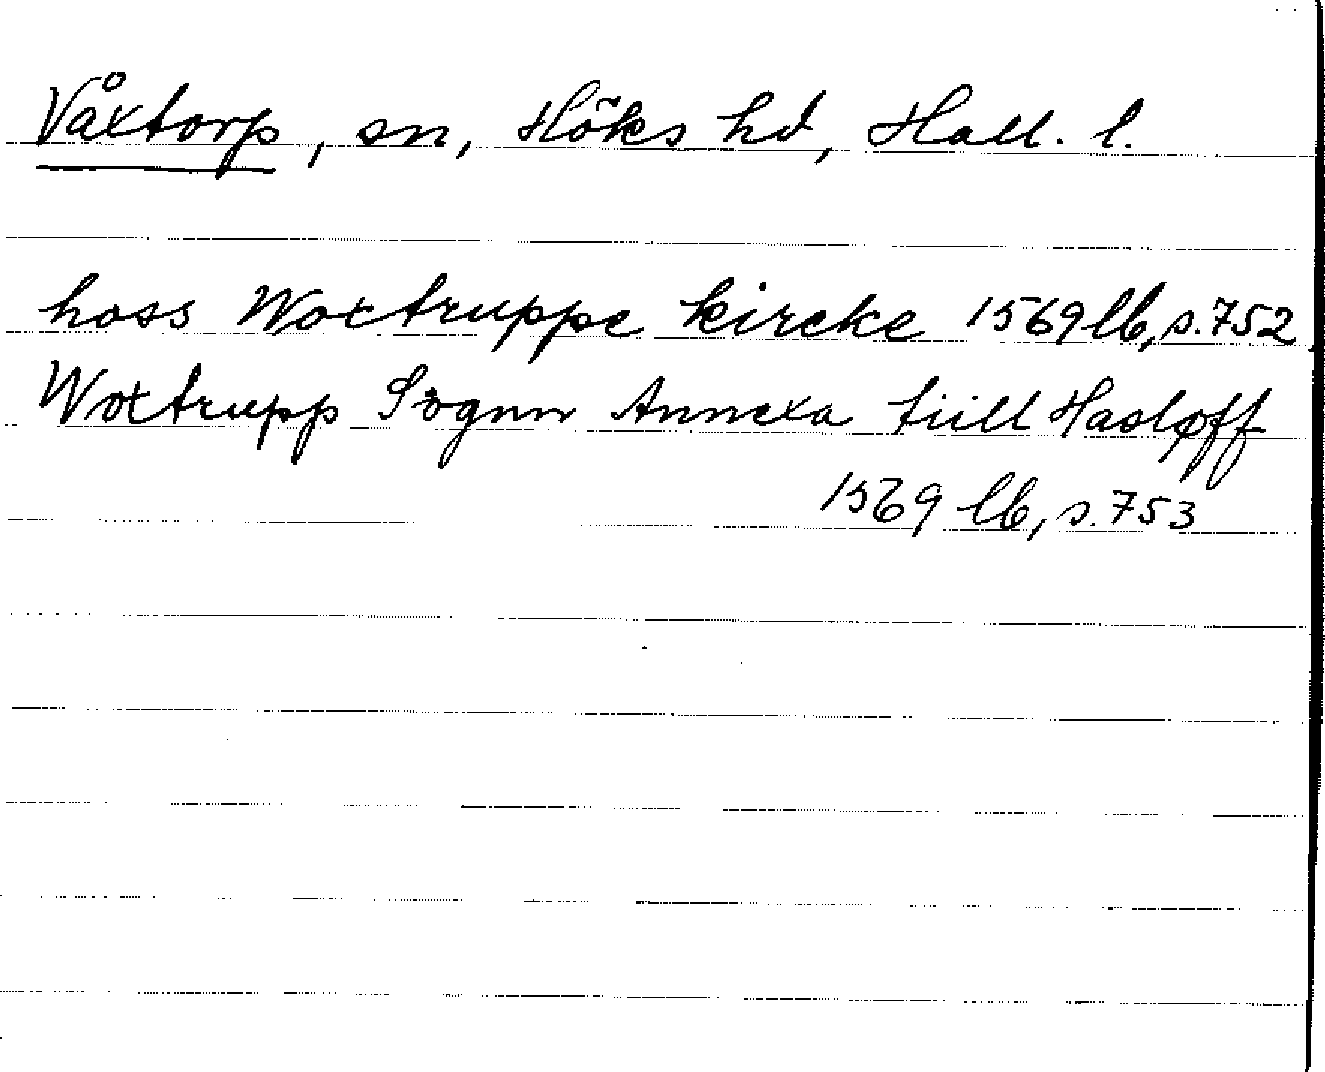 Våxtorp, sn, Höks hd, Hall. l.
hoss Woxtruppe kircke 1569 lb, s. 752
Woxtrupp Sognn Annexa tiill Hasløff
1569 lb, s. 753